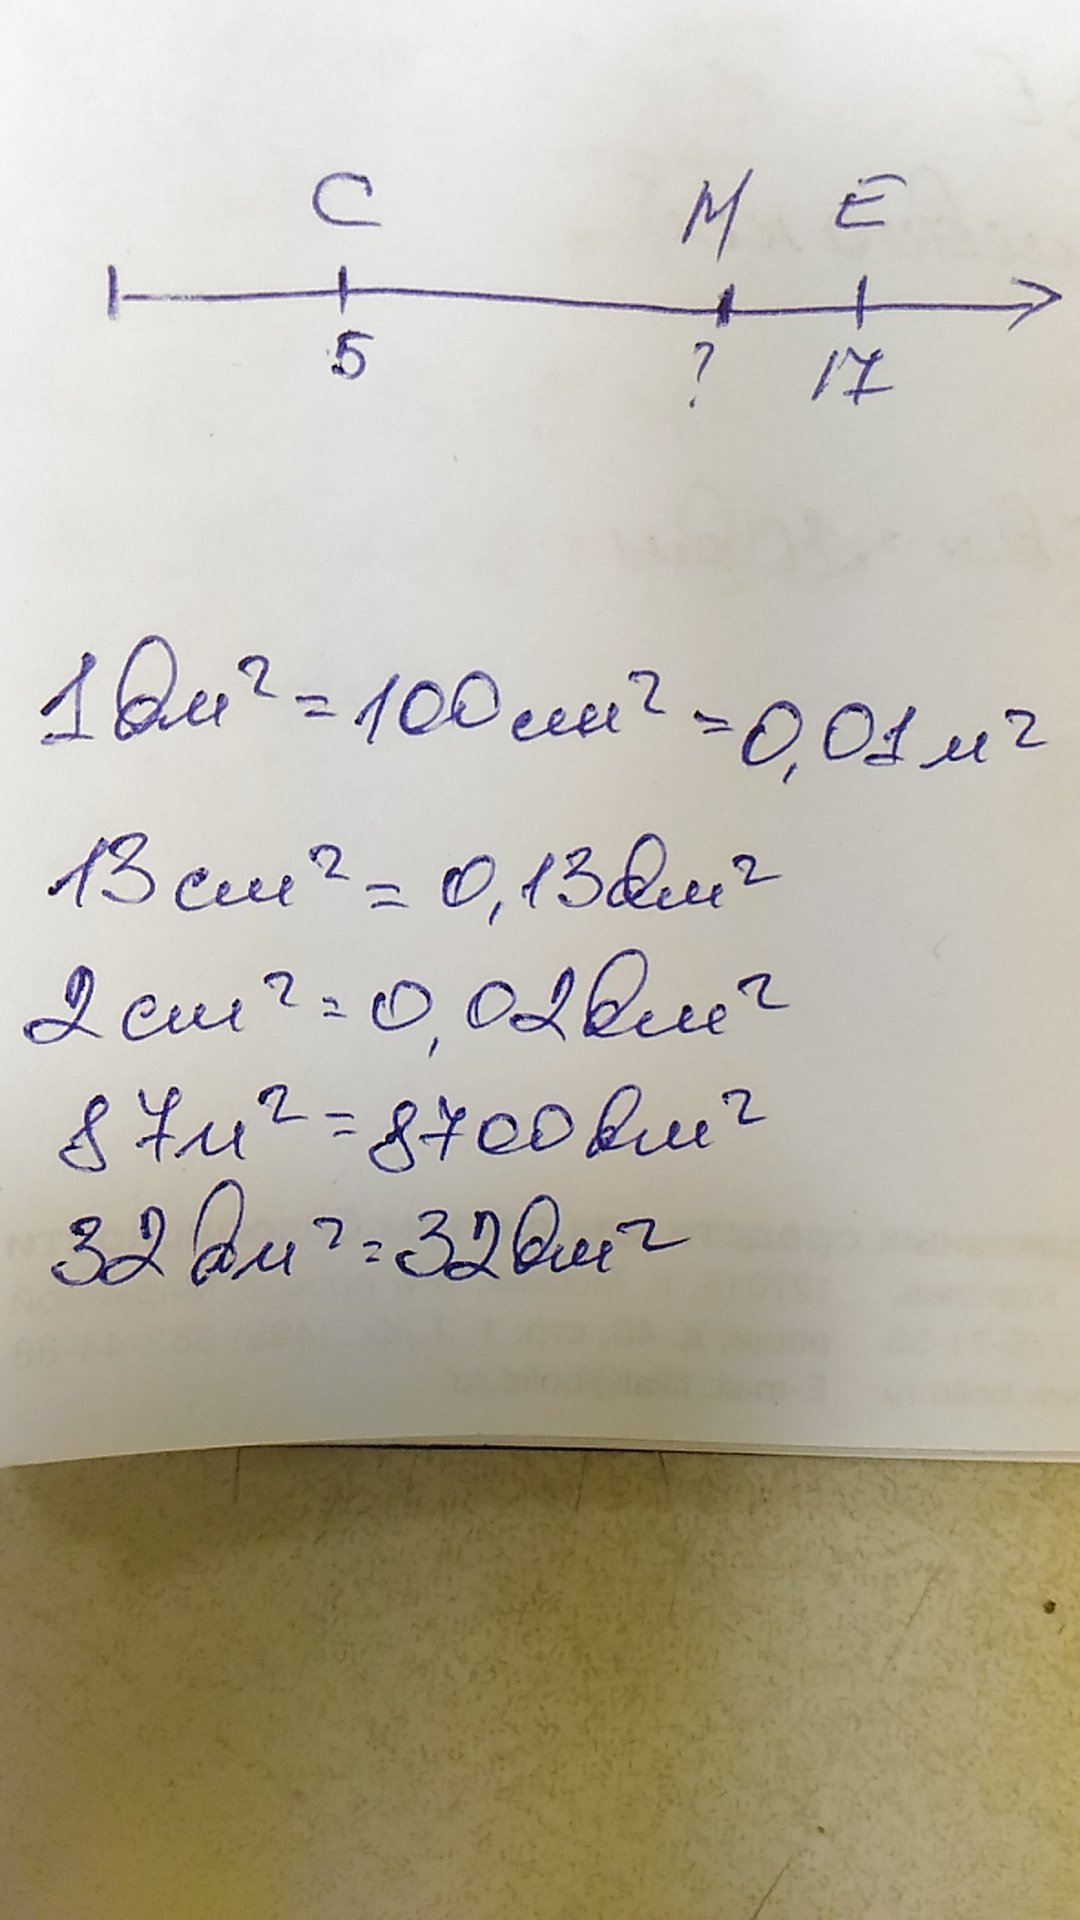 C M E
5 ? 17
1 дм² = 100 см² = 0,01 м²
13 см² = 0,13 дм²
2 см² = 0,02 дм²
87 м² = 8700 дм²
32 дм² = 32 дм²